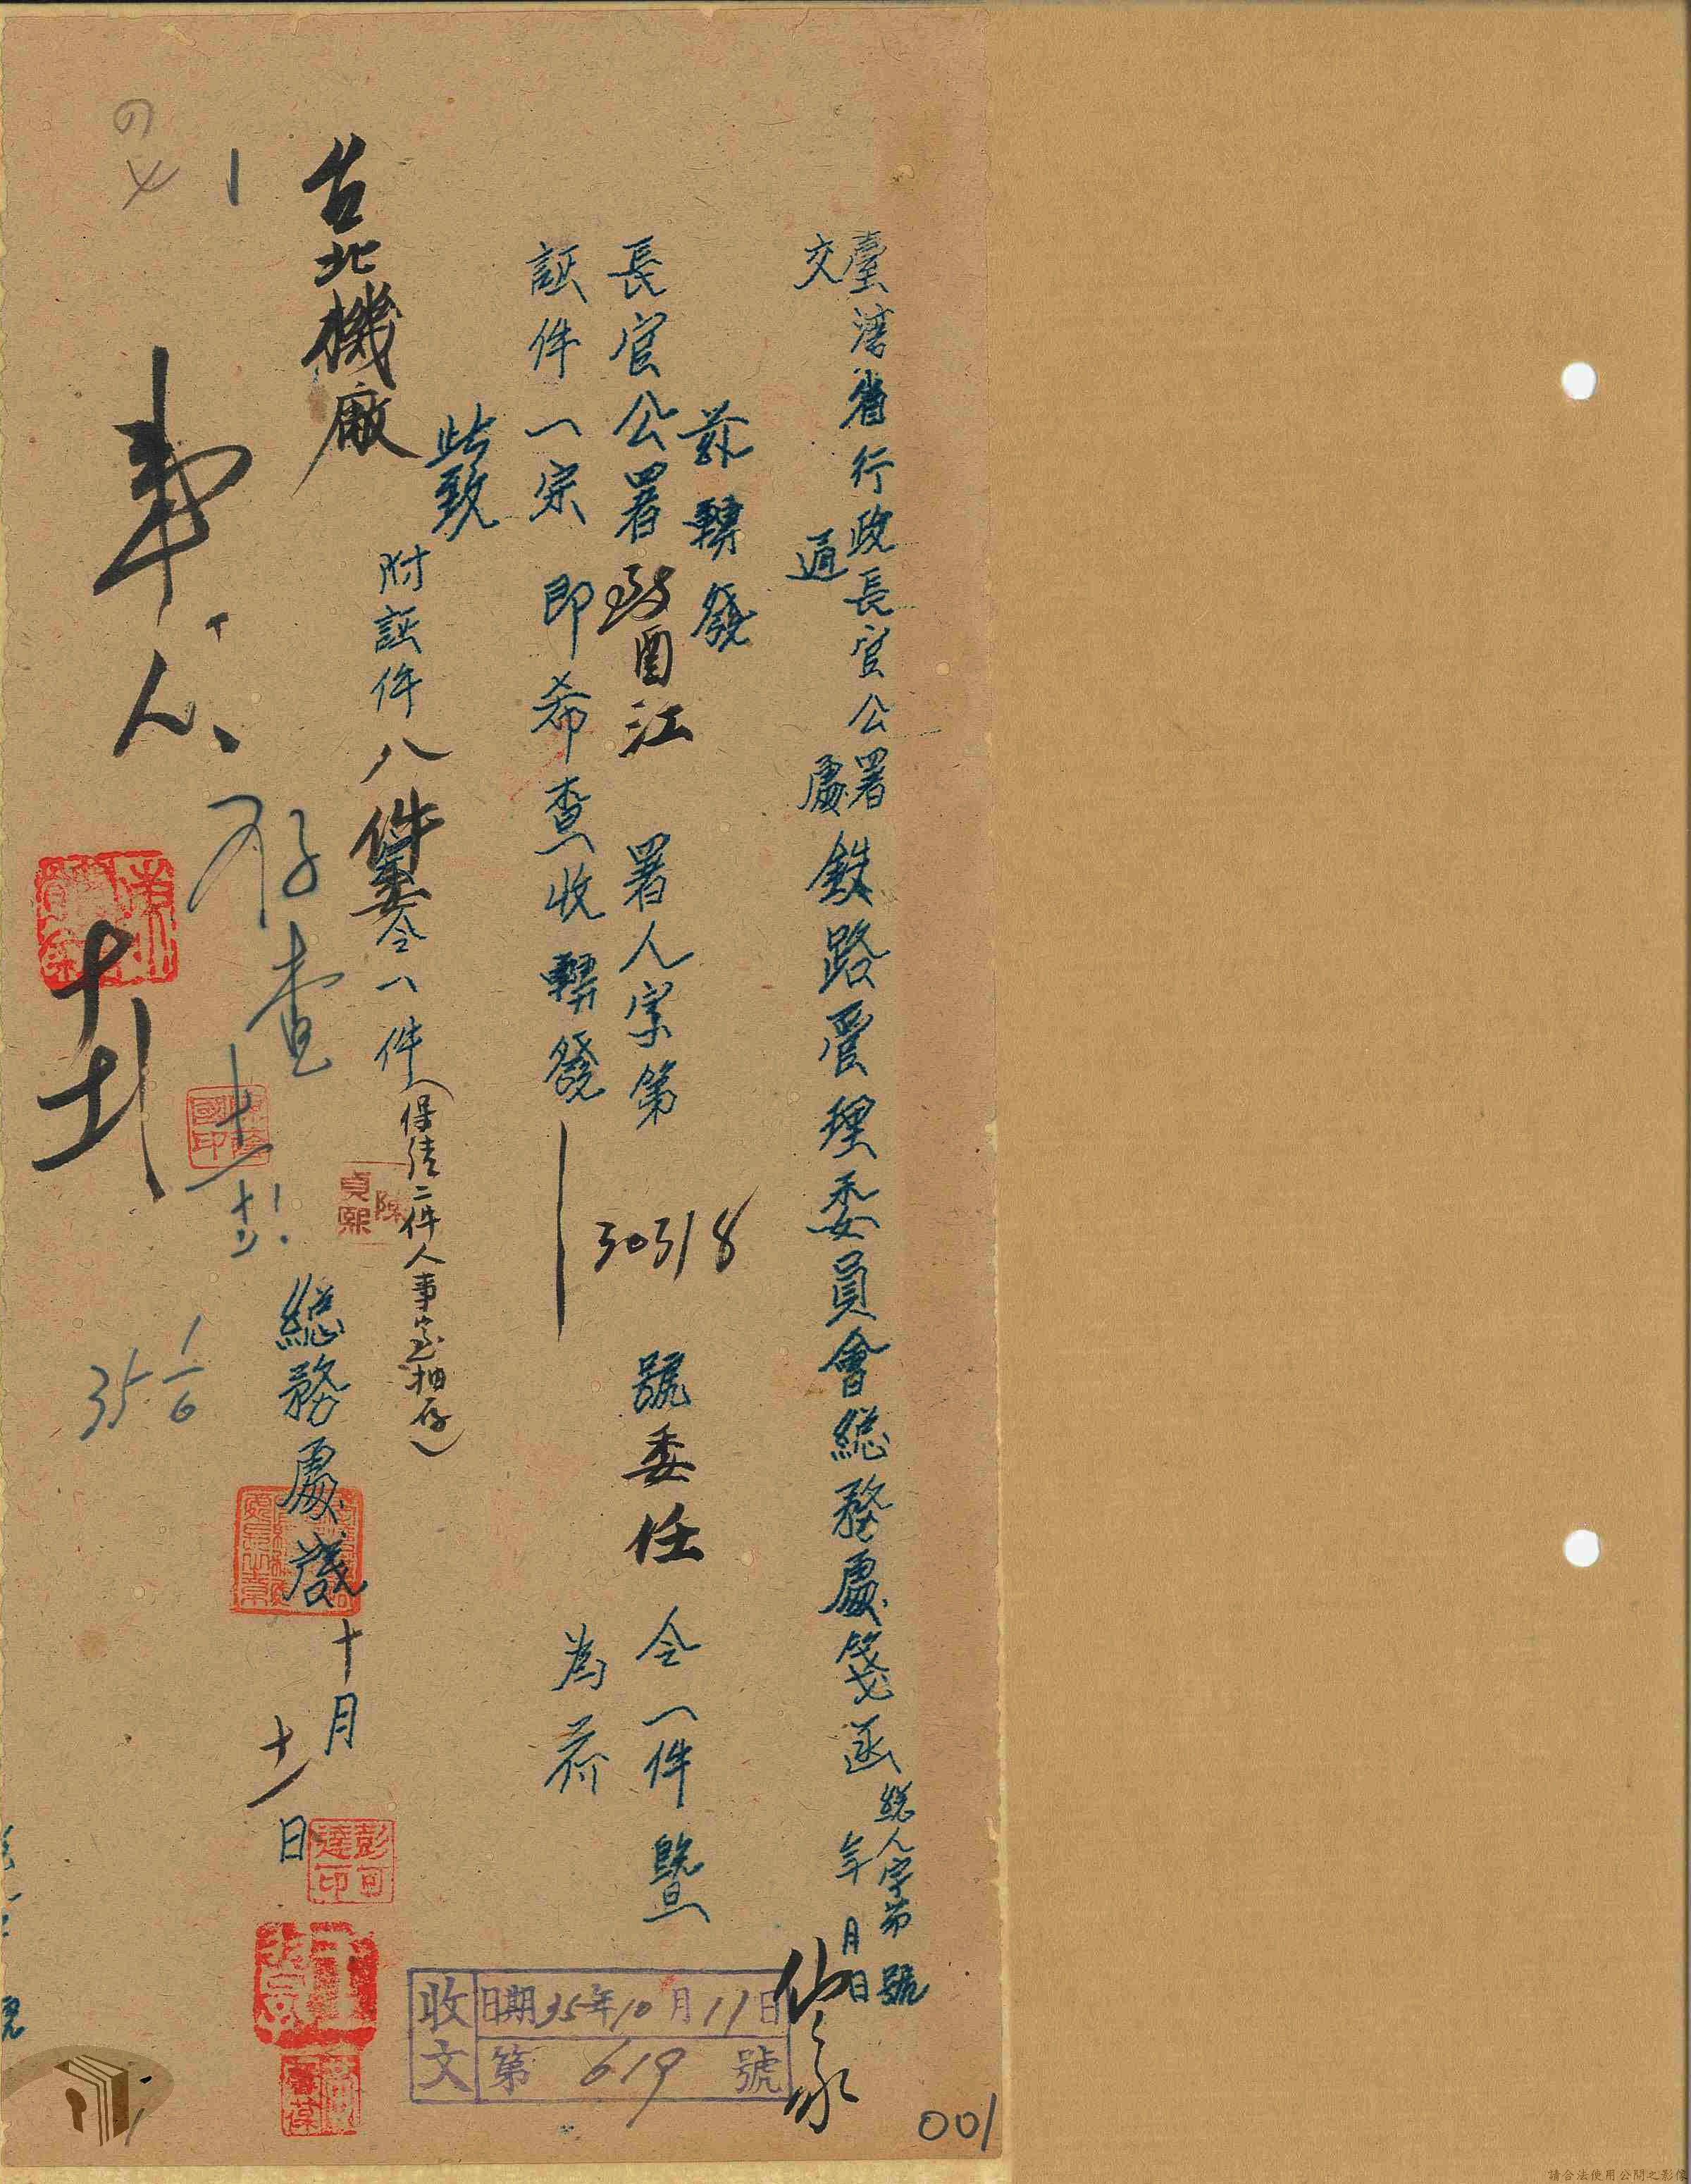 臺灣省行政長官公署
交通處
鉄路管理委員會總務處箋函
總人字第 號
年 月 日
茲轉發
長官公署致酉江 署人字第30318號委任令一件暨
証件一宗即希查收轉發 為荷
此致
附証件八件委令一件(保結二件人事室抽存)
台北機廠
總務處箋
十月
十一日
陳貞熙
存查
人
35 1/6
1
彭可達印
收文
日期35年10月11日
第619號
001
請合法使用公開之影像